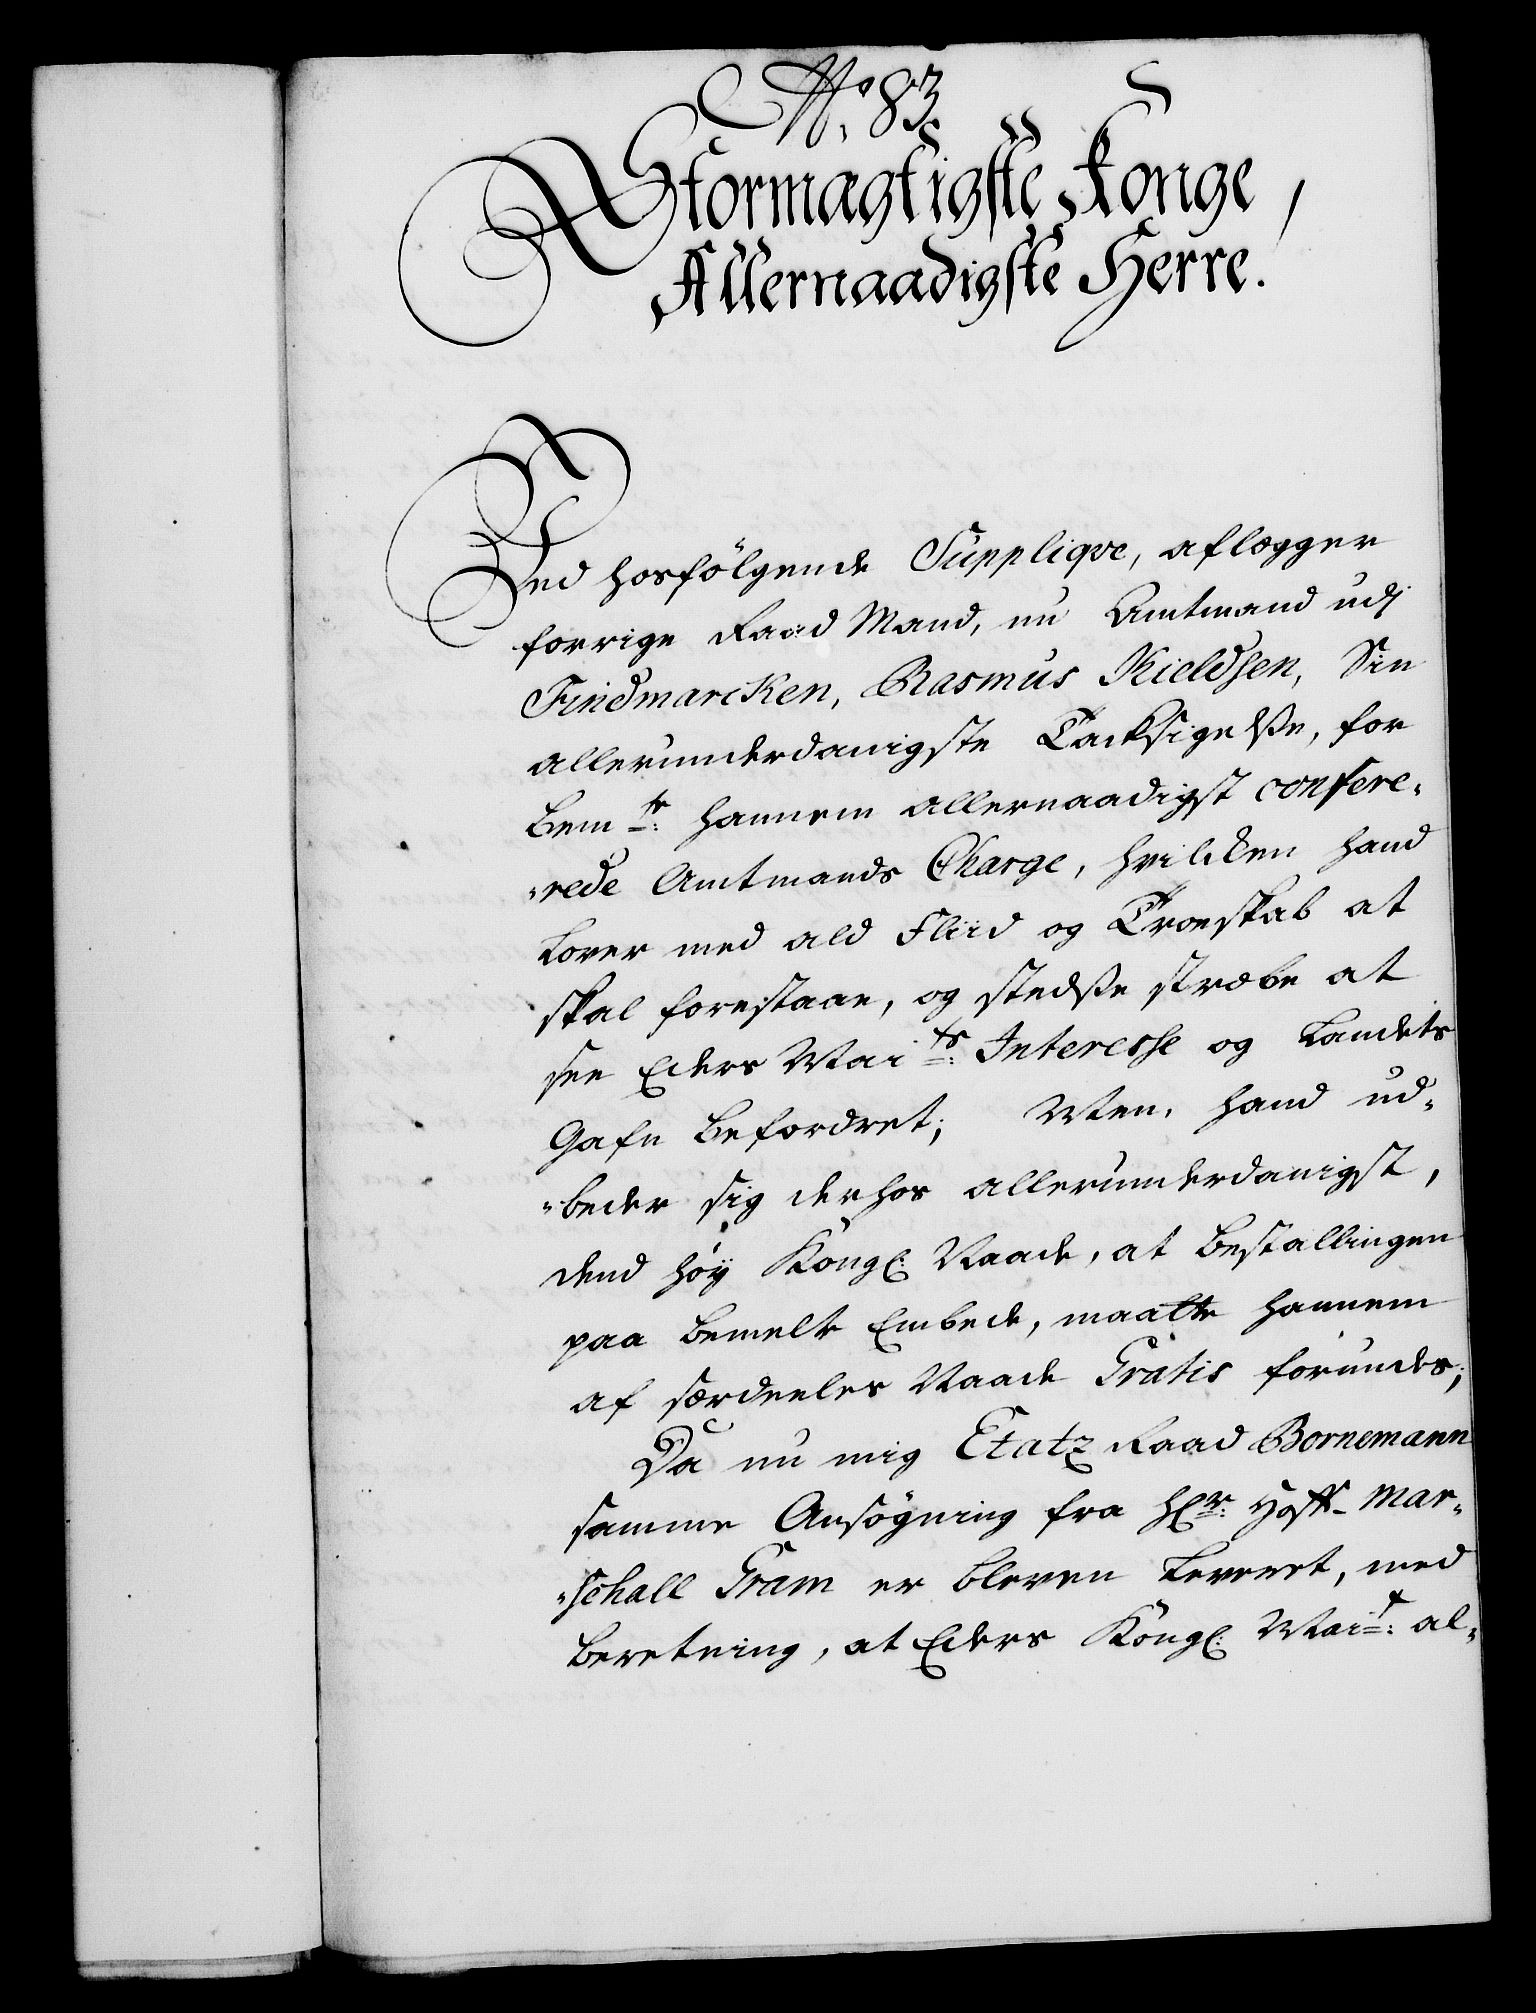 No. 83.
Stormægtigste Konge,
Allernaadigste Herre.
Ved hosfölgende Suppliqve, aflægger
forrige Raad Mand, nu Amtmand udj
Findmarcken, Rasmus Kieldsen, Sin
allerunderdanigste Tacksigelße, for
bemte: hannem allernaadigst confere-
-rede Amtmands Charge, hvilcken hand
lover med ald Fliid og Troeskab at
skal forestaae, og stedsze stræbe at
see Eders Maits: Interesse og Landets
Gafn befordret; Men, hand ud-
-beder sig derhos allerunderdanigst,
dend höy Kongl: Naade, at bestallingen
paa bemelte Embede, maatte hannem
af særdeeles Naade Gratis forundes;
Da nu mig Etatz Raad Bornemann
samme Ansögning fra Hr: Hoff-Mar-
-schall Gram er bleven leveret, med
beretning, at Eders Kongl: Mait: al-